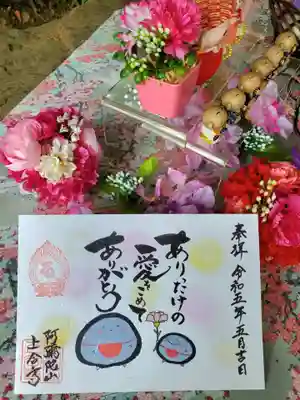 奉拝 令和五年五月吉日
ありったけの
愛をこめて
ありがとう
阿彌陀山